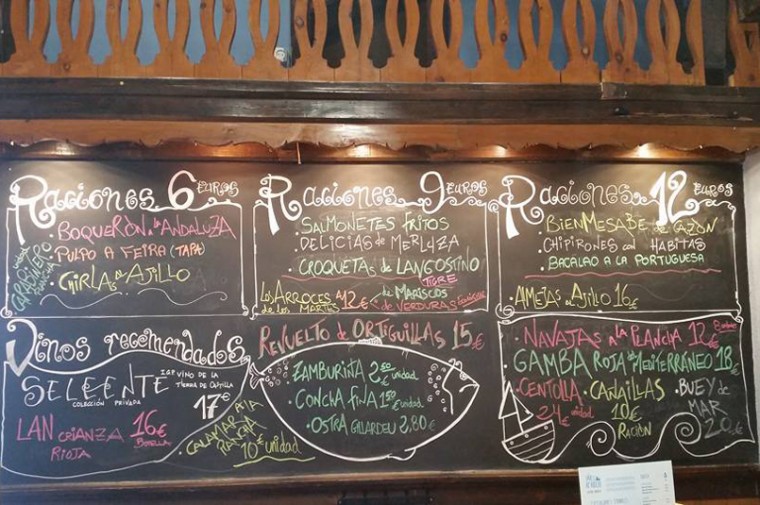 Raciones 6 euros
BOQUERÓN a la ANDALUZA
PULPO A FEIRA (TAPA)
CHIRLAS al AJILLO
CARABINERO
Raciones 9 euros
• SALMONETES FRITOS
• DELICIAS de MERLUZA
• CROQUETAS de LANGOSTINO
TIGRE
LOS ARROCES de los MARTES 12€
de MARISCOS
de VERDURAS
Raciones 12 euros
• BIENMESABE de CAZÓN
• CHIPIRONES con HABITAS
• BACALAO A LA PORTUGUESA
ALMEJAS al AJILIO 16€
Vinos recomendados
SELEENTE
COLECCIÓN PRIVADA
IGP VINO de la TIERRA de CASTILLA
17€
LAN CRIANZA
RIOJA
16€
BOTELLA
CALAMAR A LA PLANCHA
10€ unidad
REVUELTO de ORTIGUILLAS 15€
• ZAMBURIÑA 2,50 unidad
• CONCHA FINA 1,50 unidad
• OSTRA GILLARDEU 2,80
• NAVAJAS a la PLANCHA 12€
GAMBA ROJA del MEDITERRÁNEO 18€
• CENTOLLA
24€ unidad
• CAÑAILLAS
10€
RACIÓN
• BUEY de MAR
20€